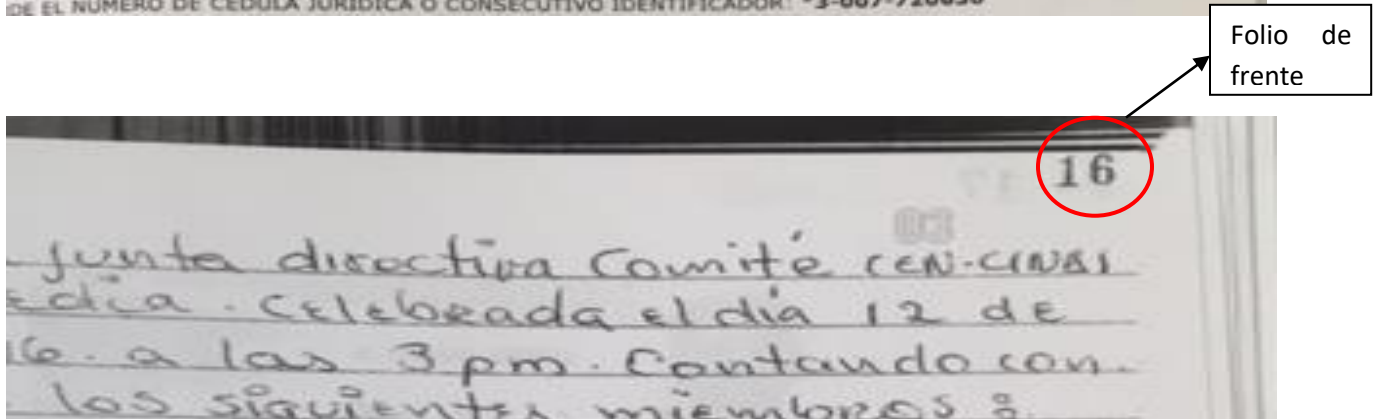 DE EL NÚMERO DE CÉDULA JURÍDICA O CONSECUTIVO IDENTIFICADOR:
Folio de
frente
16
junta directiva Comité CEN-CINAI
edia. Celebrada el día 12 de
16. a las 3 pm. Contando con
los siguientes miembros: